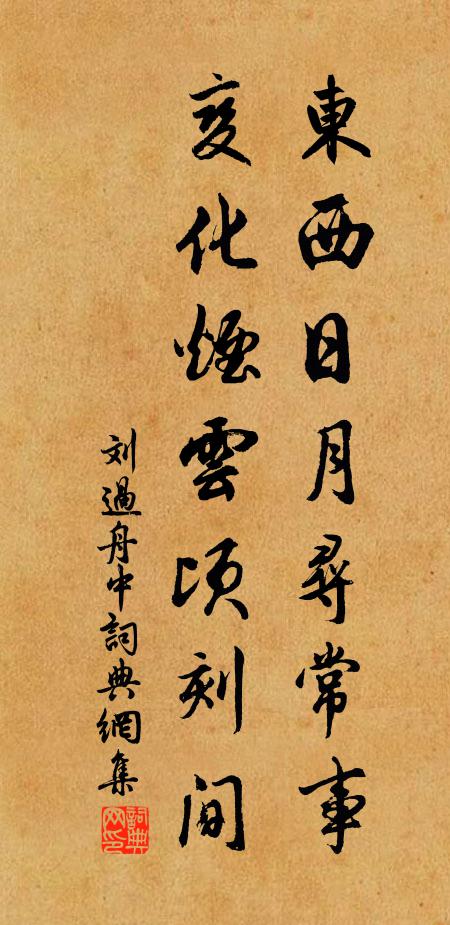 東西日月尋常事
変化煙雲頃刻間
刘過舟中詞典網集
詞典网印